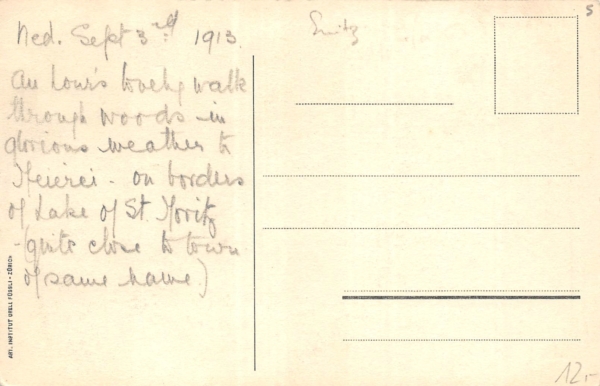 Wed. Sept 3rd 1913
An hour's lovely walk
through woods - in
glorious weather to
Meierei - on borders
of Lake of St. Moritz
- (quite close to town
of same name)
ART. INSTITUT ORELL FÜSSLI - ZÜRICH
S
12.-